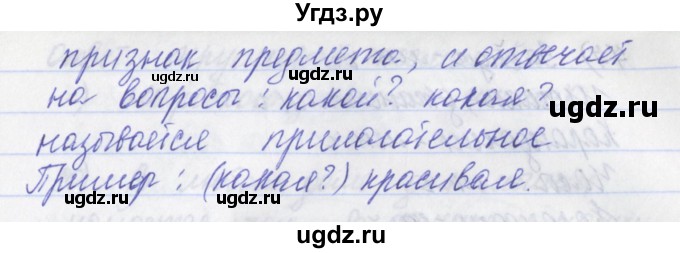 Угдз.ру
признак предмета, и отвечает
ugdz.ru
ugdz.ru
на вопросы: какой? какая?
ugdz.ru
называется прилагательное
Пример: (какая?) красивая.
ugdz.ru
ugdz.ru
ugdz.ru